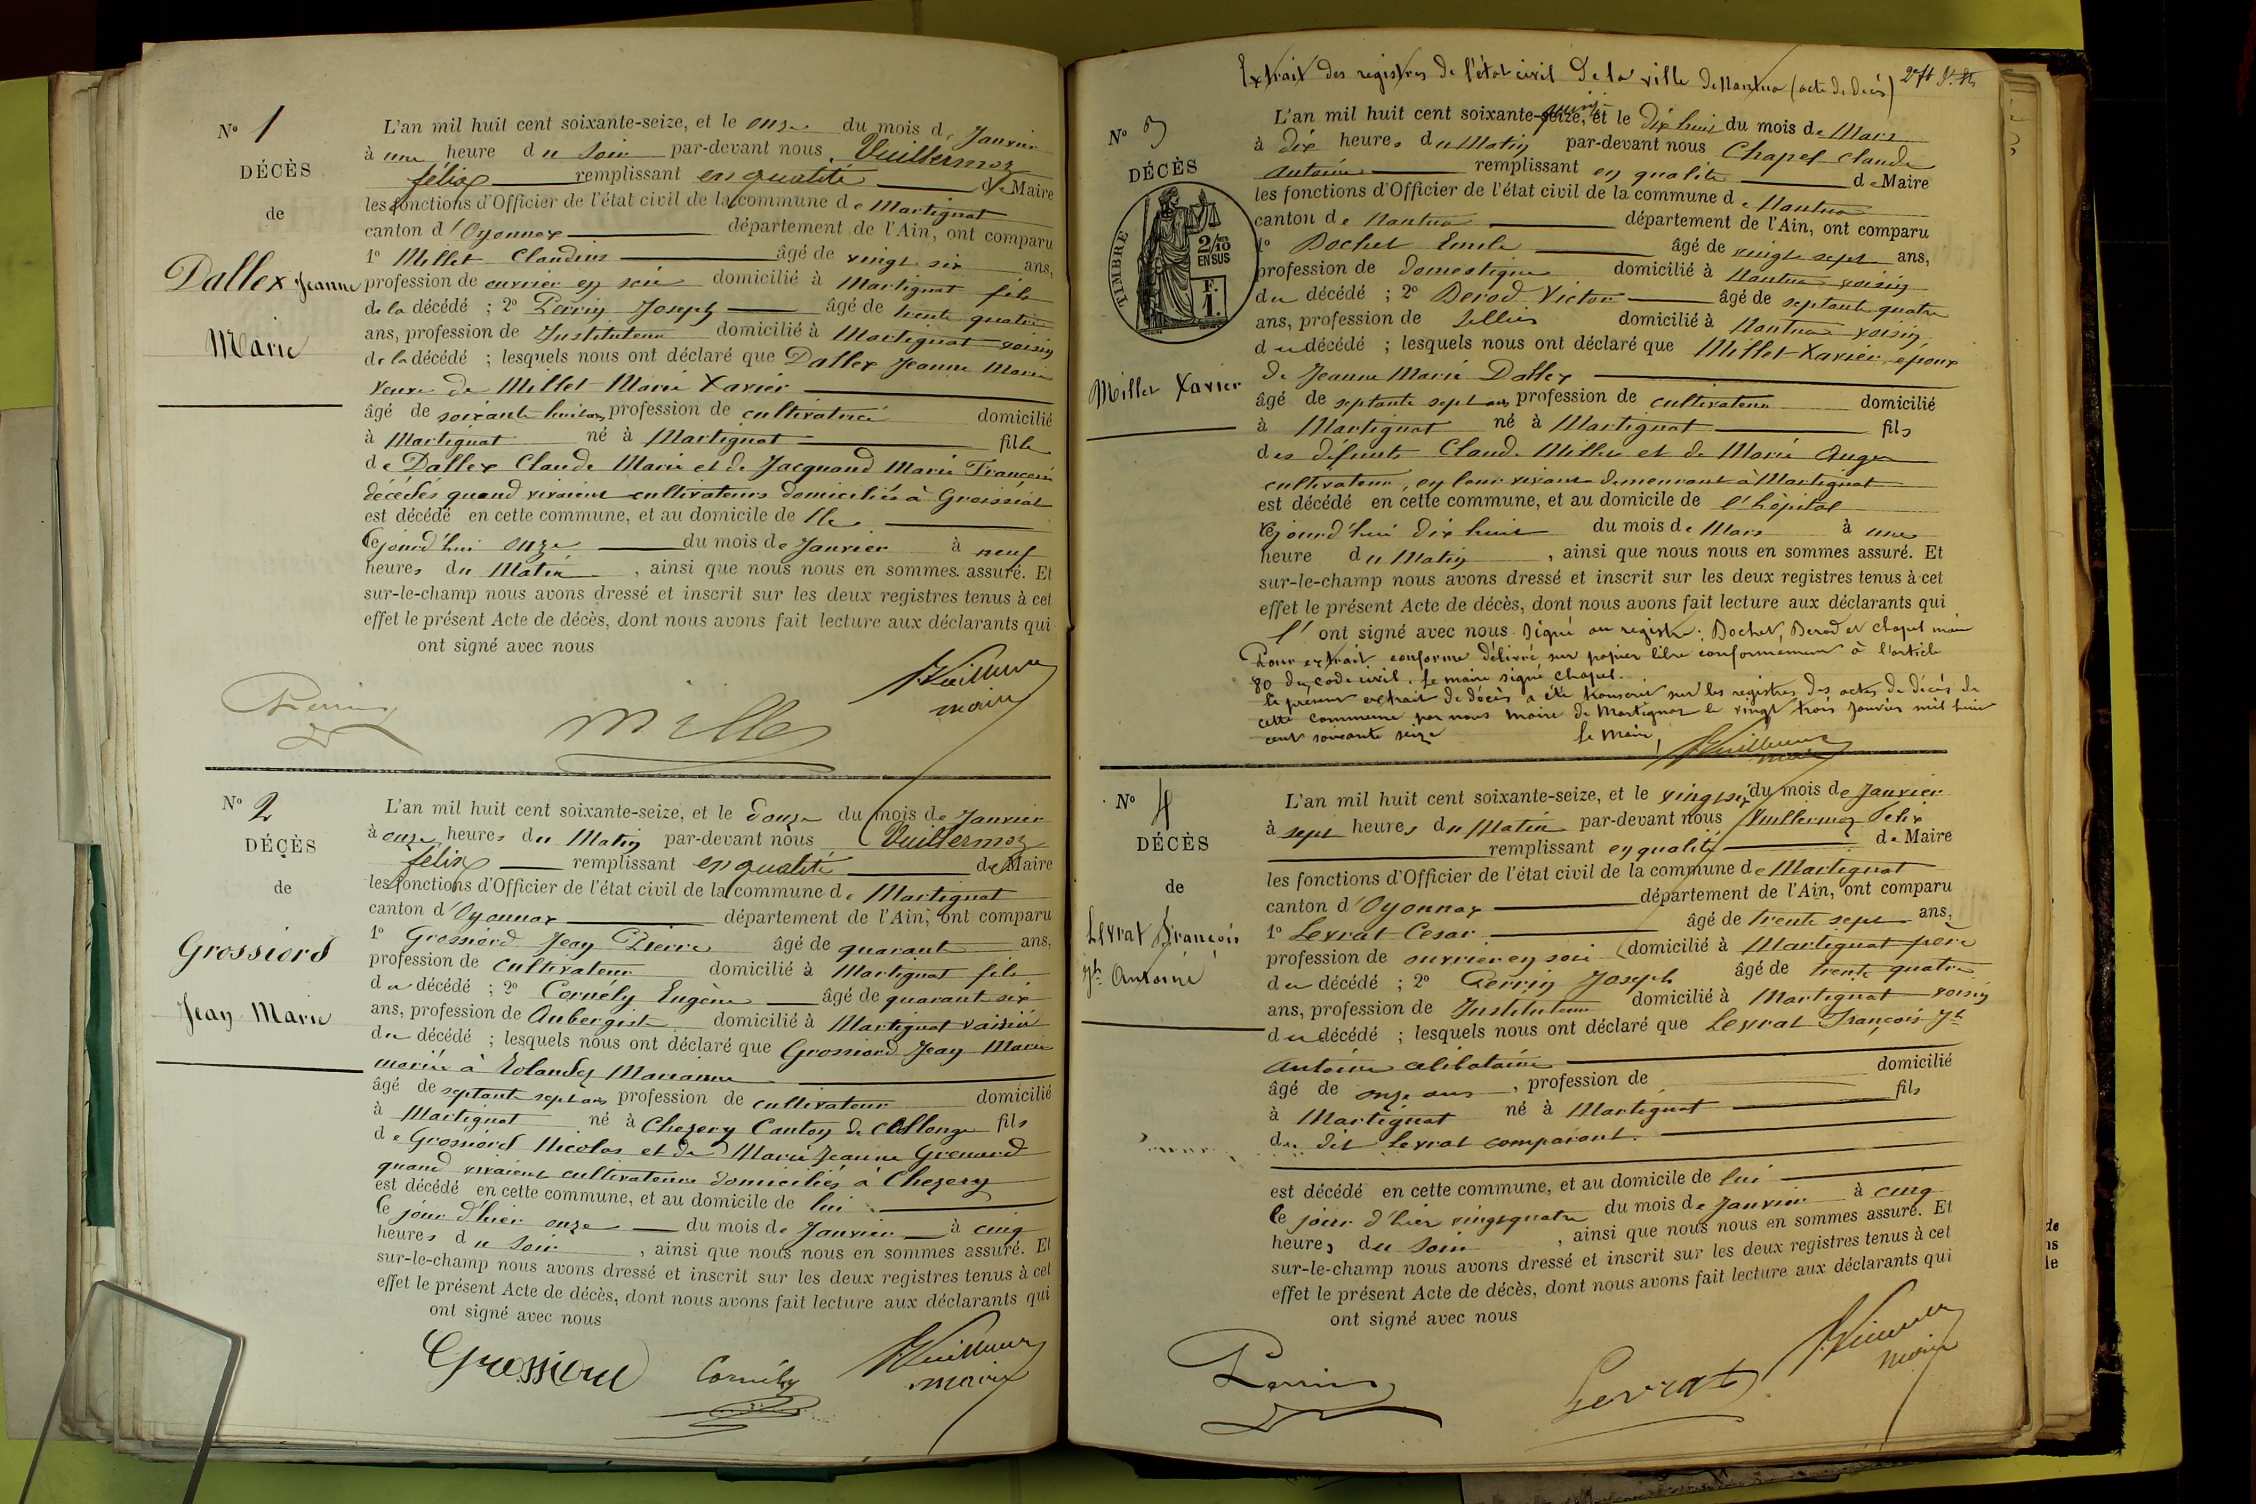 N° 1
DÉCÈS
de
Dallex Jeanne
Marie
L'an mil huit cent soixante-seize, et le onze du mois de Janvier
à une heure du soir par-devant nous Vuillermoz
félix remplissant en qualité de Maire
les fonctions d'Officier de l'état civil de la commune de Martignat
canton d'Oyonnax département de l'Ain, ont comparu
1° Millet Claudius âgé de vingt six ans,
profession de ouvrier en soie domicilié à Martignat fils
de la décédé ; 2° Perrin Joseph âgé de trente quatre
ans, profession de Instituteur domicilié à Martignat voisin
de la décédé ; lesquels nous ont déclaré que Dallex Jeanne Marie
veuve de Millet Marie Xavier
âgé de soixante huit ans profession de cultivatrice domicilié
à Martignat né à Martignat fille
de Dallex Claude Marie et de Jacquand Marie Françoise
décédés quand vivaient cultivateurs domiciliés à Groissiat
est décédé en cette commune, et au domicile de elle
Cejourd'hui onze du mois de Janvier à neuf
heures du Matin , ainsi que nous nous en sommes assuré. Et
sur-le-champ nous avons dressé et inscrit sur les deux registres tenus à cet
effet le présent Acte de décès, dont nous avons fait lecture aux déclarants qui
ont signé avec nous
Perrin Millet Vuillermoz
maire
N° 2
DÉCÈS
de
Grossiord
Jean Marie
L'an mil huit cent soixante-seize, et le douze du mois de Janvier
à onze heures du Matin par-devant nous Vuillermoz
félix remplissant en qualité de Maire
les fonctions d'Officier de l'état civil de la commune de Martignat
canton d'Oyonnax département de l'Ain, ont comparu
1° Grossiord Jean Pierre âgé de quarant ans,
profession de cultivateur domicilié à Martignat fils
du décédé ; 2° Cornély Eugène âgé de quarant six
ans, profession de Aubergiste domicilié à Martignat voisin
du décédé ; lesquels nous ont déclaré que Grossiord Jean Marie
marié à Rolandez Marianne
âgé de septante sept ans profession de cultivateur domicilié
à Martignat né à Chezery Canton de Collonge fils
de Grossiord Nicolas et de Marie Jeanne Grenard
quand vivaient cultivateurs domiciliés à Chezery
est décédé en cette commune, et au domicile de lui
le jour d'hier onze du mois de Janvier à cinq
heures du soir , ainsi que nous nous en sommes assuré. Et
sur-le-champ nous avons dressé et inscrit sur les deux registres tenus à cet
effet le présent Acte de décès, dont nous avons fait lecture aux déclarants qui
ont signé avec nous
Grossiord Cornély Vuillermoz
maire
Extrait des registres de l'état civil de la ville de Nantua (acte de décès)
N° 3
DÉCÈS
TIMBRE
2/10
EN SUS
F.
1.
Millet Xavier
L'an mil huit cent soixante-seize, quinze et le dix huit du mois de Mars
à dix heures du Matin par-devant nous Chapel Claude
Antoine remplissant en qualité de Maire
les fonctions d'Officier de l'état civil de la commune de Nantua
canton de Nantua département de l'Ain, ont comparu
1° Bochet Emile âgé de vingt sept ans,
profession de domestique domicilié à Nantua voisin
du décédé ; 2° Derod Victor âgé de septante quatre
ans, profession de sellier domicilié à Nantua voisin
du décédé ; lesquels nous ont déclaré que Millet Xavier, époux
de Jeanne Marie Dallex
âgé de septante sept ans profession de cultivateur domicilié
à Martignat né à Martignat fils
des défunts Claude Millet et de Marie Auger
cultivateurs, en leur vivant demeurant à Martignat
est décédé en cette commune, et au domicile de l'hôpital
Cejourd'hui dix huit du mois de Mars à une
heure du Matin , ainsi que nous nous en sommes assuré. Et
sur-le-champ nous avons dressé et inscrit sur les deux registres tenus à cet
effet le présent Acte de décès, dont nous avons fait lecture aux déclarants qui
l' ont signé avec nous. Signé au registre : Bochet, Derod et Chapel maire
Pour extrait conforme délivré sur papier libre conformément à l'article
80 du code civil. Le maire signé Chapel.
Le présent extrait de décès a été transcrit sur les registres des actes de décès de
cette commune par nous maire de Martignat le vingt trois Janvier mil huit
cent soixante seize Le Maire,
Vuillermoz
N° 4
DÉCÈS
de
Levrat François
Jh Antoine
L'an mil huit cent soixante-seize, et le vingt six du mois de Janvier
à sept heures du Matin par-devant nous Vuillermoz Félix
remplissant en qualité de Maire
les fonctions d'Officier de l'état civil de la commune de Martignat
canton d'Oyonnax département de l'Ain, ont comparu
1° Levrat Cesar âgé de trente sept ans,
profession de ouvrier en soie domicilié à Martignat père
du décédé ; 2° Perrin Joseph âgé de trente quatre
ans, profession de Instituteur domicilié à Martignat voisin
du décédé ; lesquels nous ont déclaré que Levrat François Jh
Antoine célibataire
âgé de onze ans , profession de domicilié
à Martignat né à Martignat fils
du dit Levrat comparant.
est décédé en cette commune, et au domicile de lui
le jour d'hier vingt quatre du mois de Janvier à cinq
heures du soir , ainsi que nous nous en sommes assuré. Et
sur-le-champ nous avons dressé et inscrit sur les deux registres tenus à cet
effet le présent Acte de décès, dont nous avons fait lecture aux déclarants qui
ont signé avec nous
Perrin Levrat Vuillermoz
maire